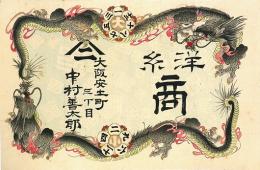 洋糸
商
大阪安土町
三丁目
中村善太郎